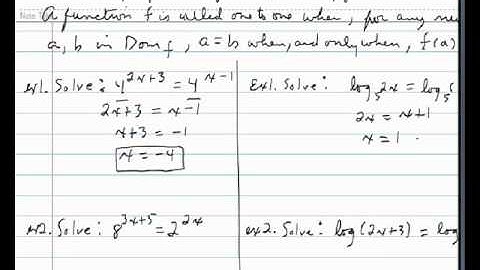 Note
A function f is called one to one when, for any
a, b in Dom f, a = b when, and only when, f(a)
ex1. Solve: 4^{2x+3} = 4^{x-1}
2x+3 = x-1
x+3 = -1
x = -4
Ex1. Solve: log_5 2x = log_5
2x = x+1
x = 1
ex2. Solve: 8^{3x+5} = 2^{2x}
ex2. Solve: log(2x+3) = log